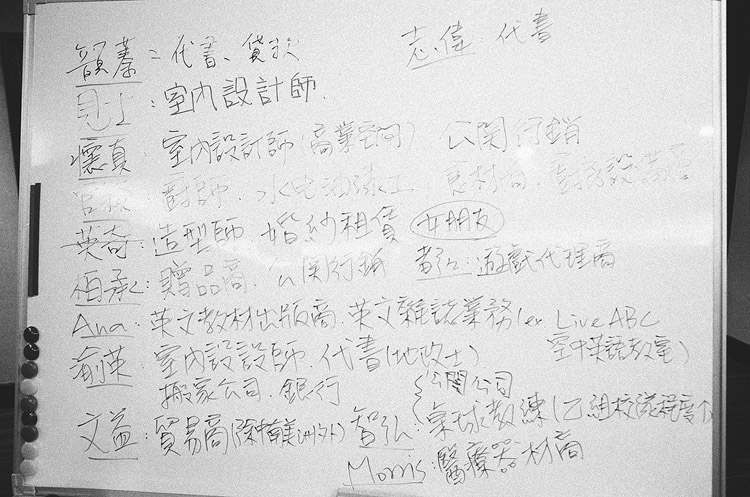 韻蓁：代書、貸款 志偉：代書
：室內設計師
懷真：室內設計師（商業空間） 公關行銷
廚師、水电油漆工、食材商、廚房設備
英奇：造型師 婚紗租賃 女朋友
柏承：贈品商、公関行銷 遊戲代理商
Ana：英文教材出版商、英文雜誌業務(ex LiveABC
空中英語教室)
俞英：室內設設師、代書(地政士)
搬家公司、銀行
公関公司
文益：貿易商(除中南美洲外) 智弘：桌球教練(乙組校隊程度
Morris：醫療器材商